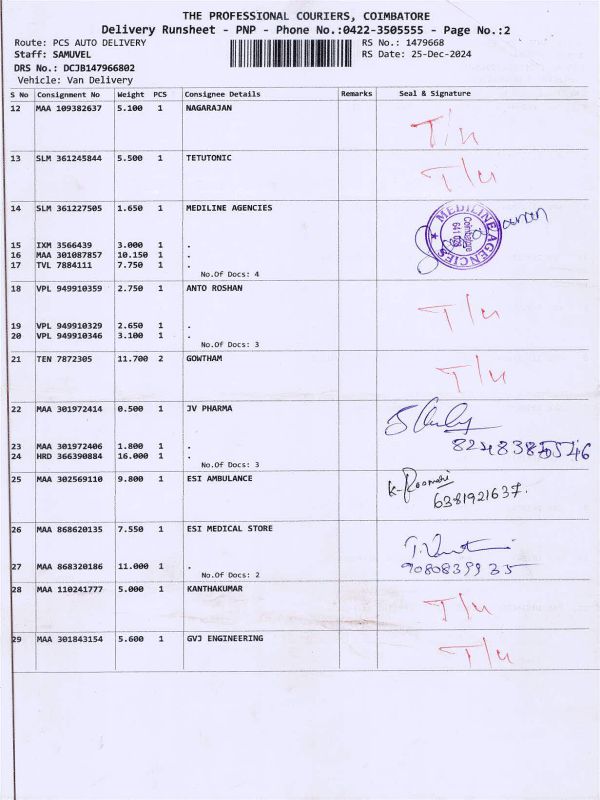 THE PROFESSIONAL COURIERS, COIMBATORE
Delivery Runsheet - PNP - Phone No.:0422-3505555 - Page No.:2
Route: PCS AUTO DELIVERY
Staff: SAMUVEL
RS No.: 1479668
RS Date: 25-Dec-2024
DRS No.: DCJB147966802
Vehicle: Van Delivery
S No Consignment No Weight PCS Consignee Details Remarks Seal & Signature
12 MAA 109382637 5.100 1 NAGARAJAN
T/U
13 SLM 361245844 5.500 1 TETUTONIC
T/U
14 SLM 361227505 1.650 1 MEDILINE AGENCIES
MEDILINE AGENCIES
Coimbatore
15 IXM 3566439 3.000 1 .
16 MAA 301087857 10.150 1 .
17 TVL 7884111 7.750 1 .
No.Of Docs: 4
18 VPL 949910359 2.750 1 ANTO ROSHAN
T/U
19 VPL 949910329 2.650 1 .
20 VPL 949910346 3.100 1 .
No.Of Docs: 3
21 TEN 7872305 11.700 2 GOWTHAM
T/U
22 MAA 301972414 0.500 1 JV PHARMA
23 MAA 301972406 1.800 1 .
24 HRD 366390884 16.000 1 .
No.Of Docs: 3
25 MAA 302569110 9.800 1 ESI AMBULANCE
6381921637.
26 MAA 868620135 7.550 1 ESI MEDICAL STORE
27 MAA 868320186 11.000 1 .
9080839935
No.Of Docs: 2
28 MAA 110241777 5.000 1 KANTHAKUMAR
T/U
29 MAA 301843154 5.600 1 GVJ ENGINEERING
T/U